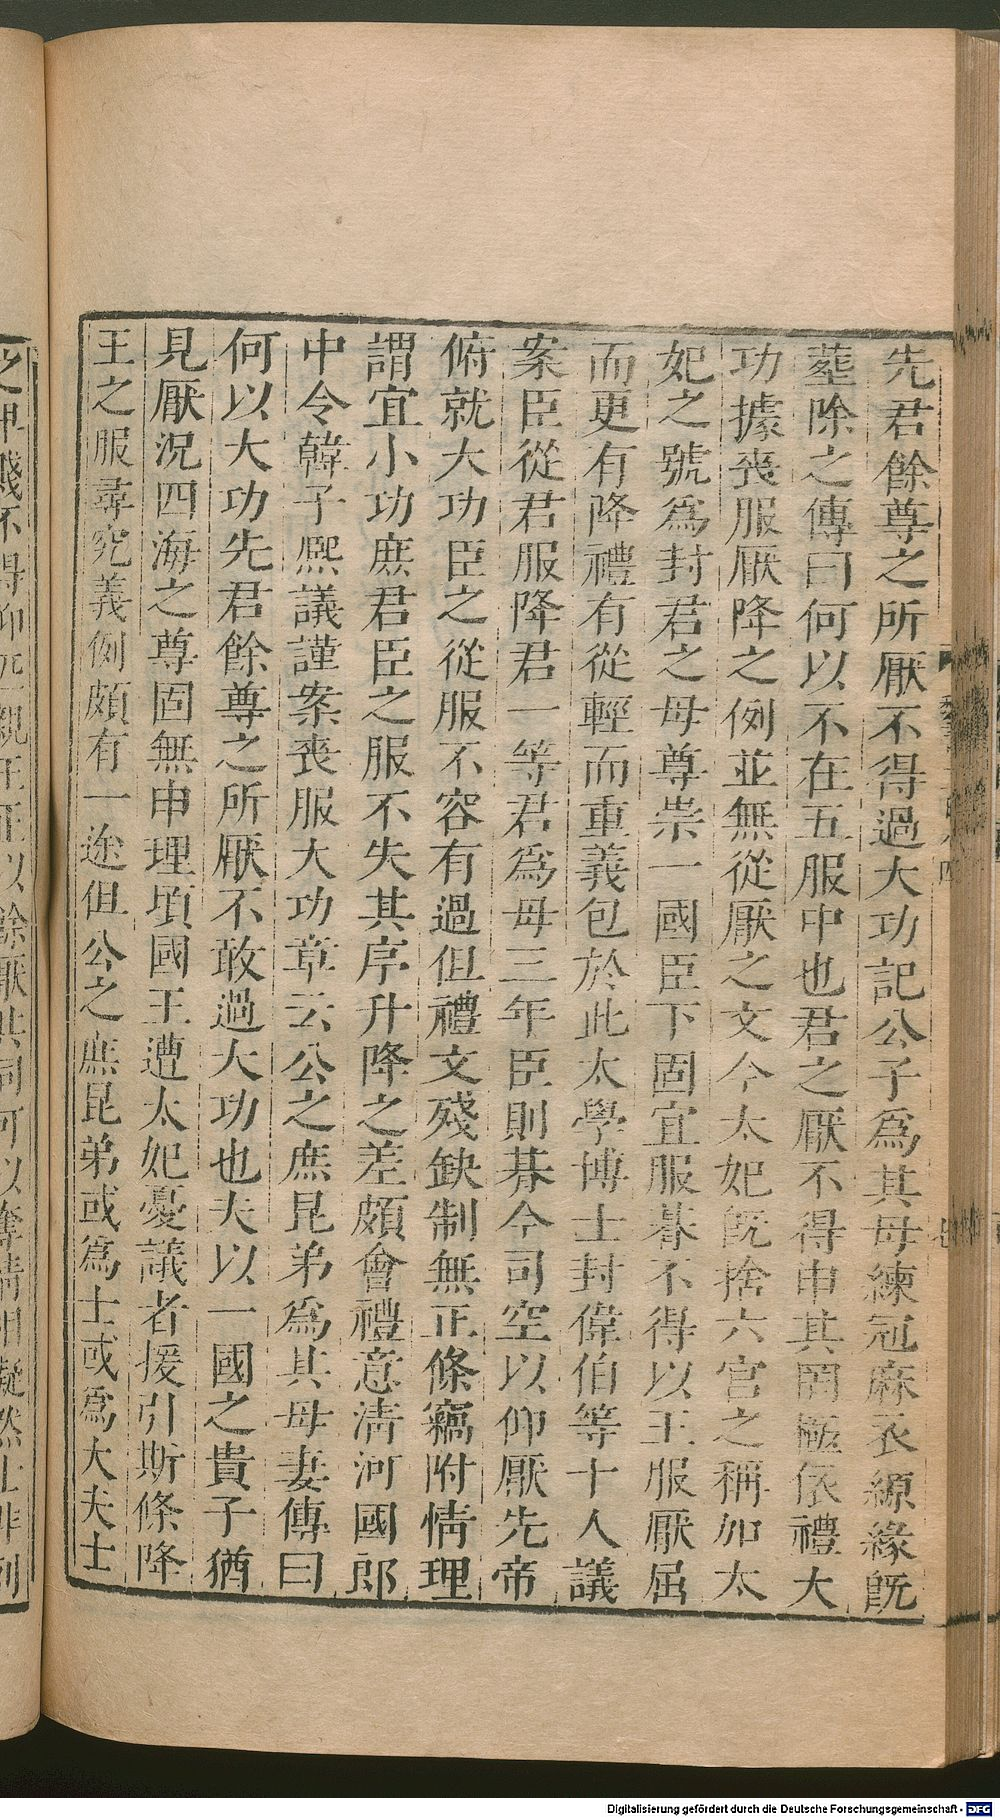 先君餘尊之所厭不得過大功記公子爲其母練冠麻衣縓緣旣
葬除之傳曰何以不在五服中也君之厭不得申其罔極依禮大
功據喪服厭降之例並無從厭之文今太妃旣捨六宮之稱加太
妃之號爲封君之母尊崇一國臣下固宜服朞不得以王服厭屈
而更有降禮有從輕而重義包於此太學博士封偉伯等十人議
案臣從君服降君一等君爲母三年臣則朞今司空以仰厭先帝
俯就大功臣之從服不容有過但禮文殘缺制無正條竊附情理
謂宜小功庶君臣之服不失其序升降之差頗會禮意淸河國郎
中令韓子熙議謹案喪服大功章云公之庶昆弟爲其母妻傳曰
何以大功先君餘尊之所厭不敢過大功也夫以一國之貴子猶
見厭況四海之尊固無申理頃國王遭太妃憂議者援引斯條降
王之服尋究義例頗有一途但公之庶昆弟或爲士或爲大夫士
Digitalisierung gefördert durch die Deutsche Forschungsgemeinschaft - DFG